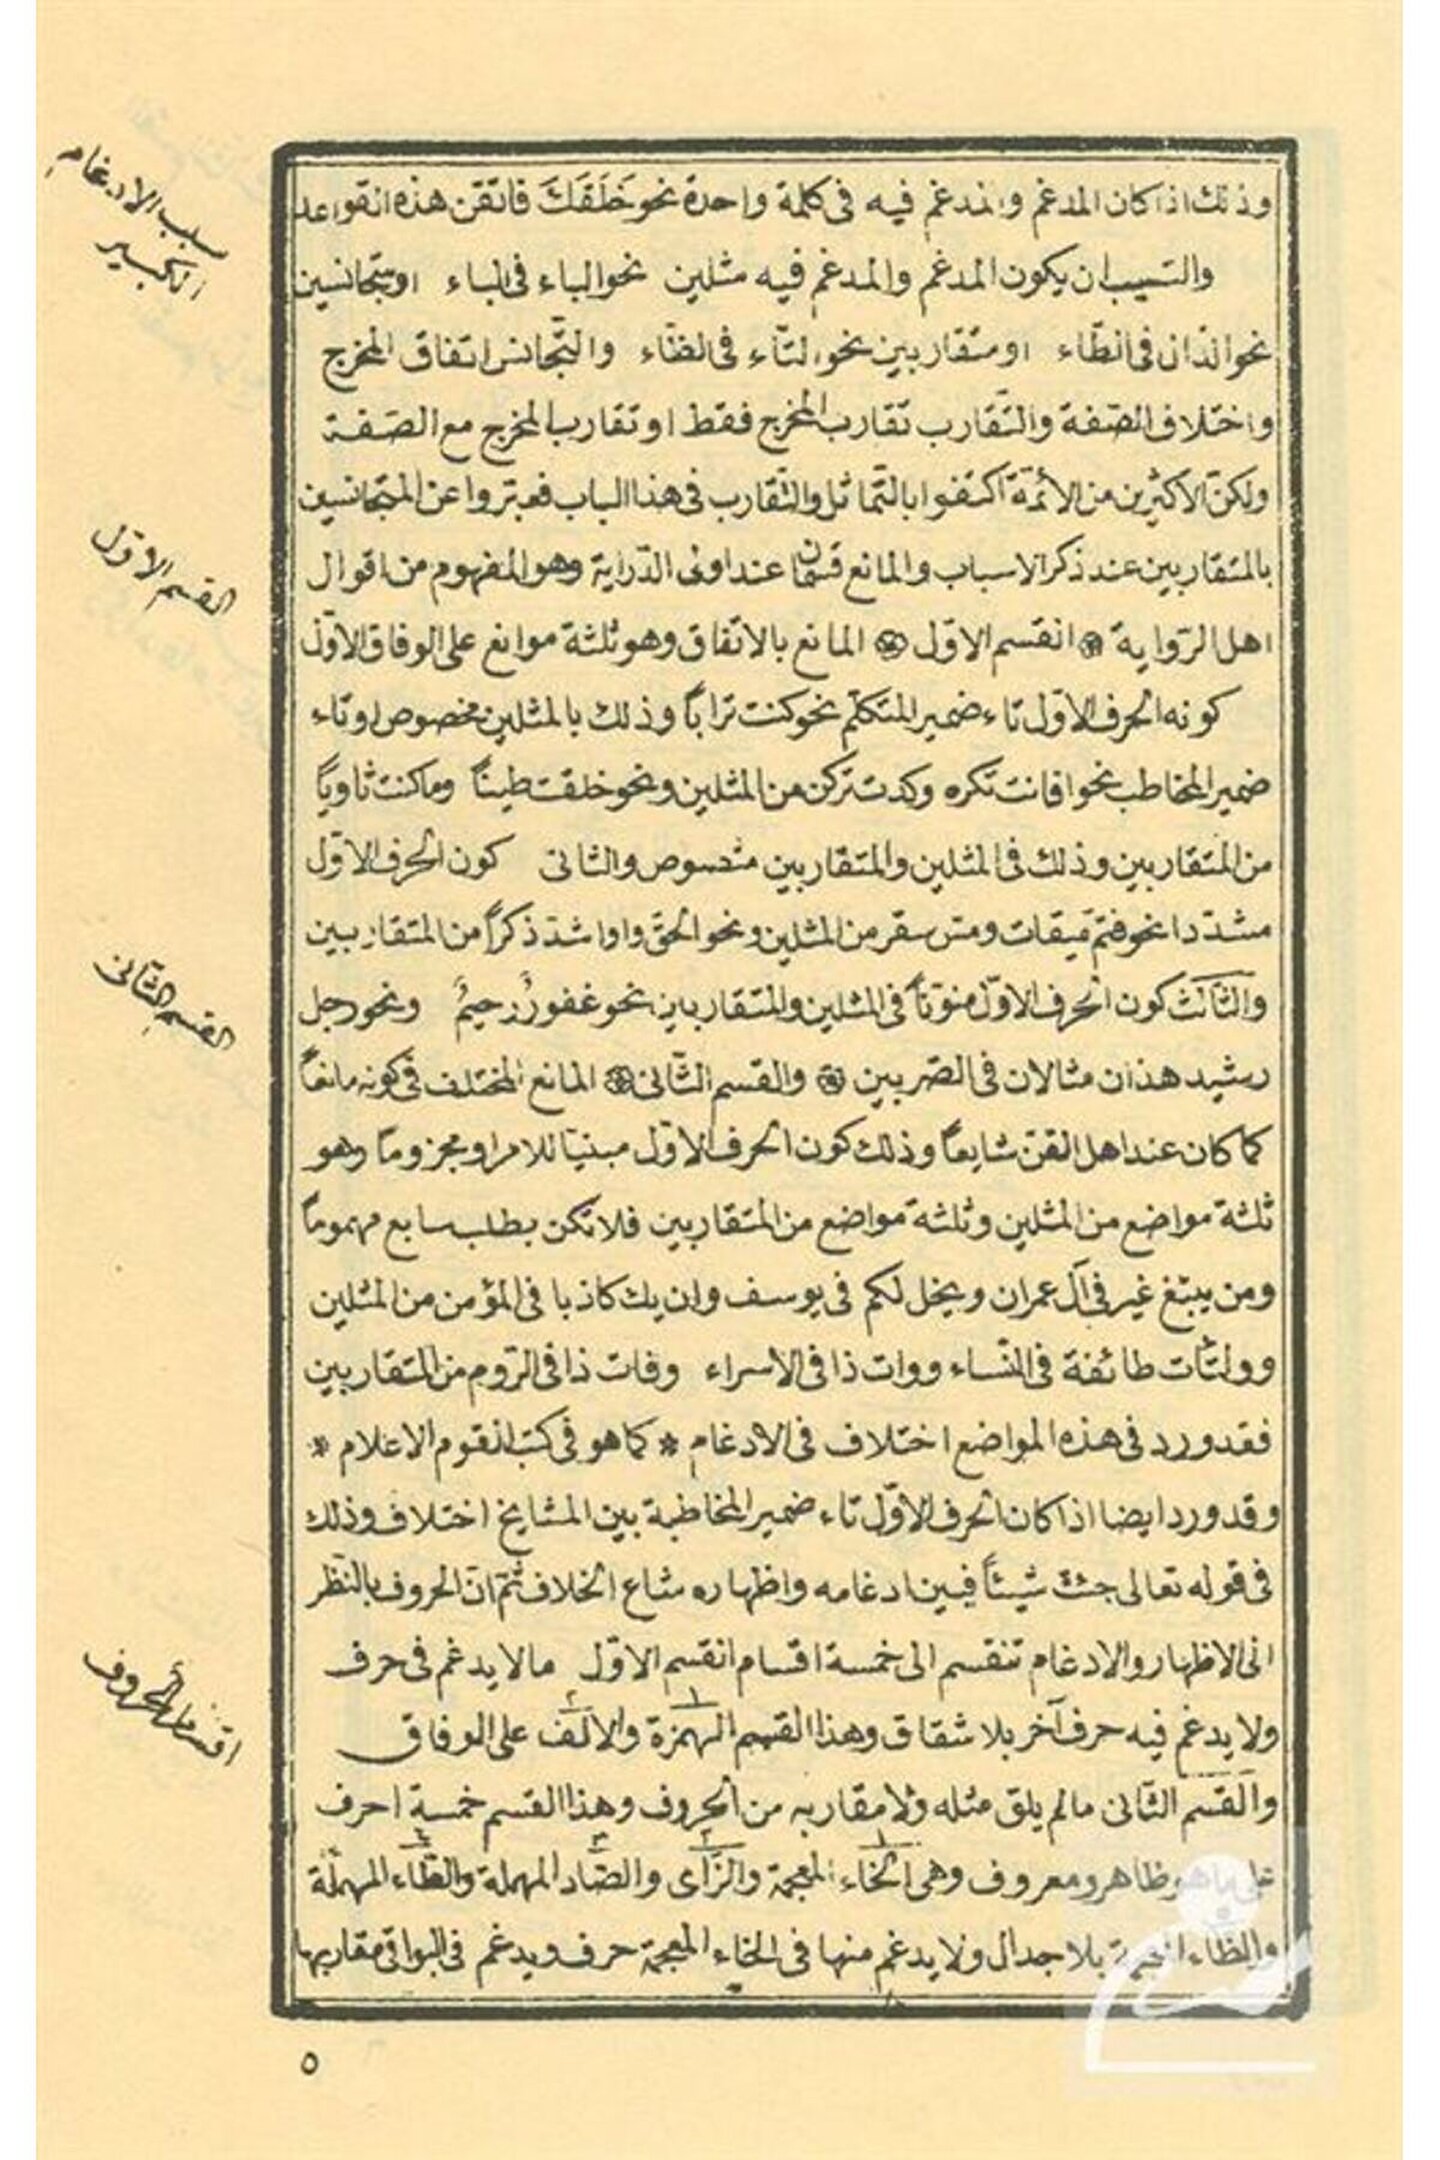 وذلك اذا كان المدغم والمدغم فيه فى كلمة واحدة نحو خَلَقَكَ فاتقن هذه القواعد
سبب الادغام
الكبير
والسبب ان يكون المدغم والمدغم فيه مثلين نحو الباء فى الباء او متجانسين
نحو الدال فى الطاء او متقاربين نحو التاء فى الظاء والتجانس اتفاق المخرج
واختلاف الصفة والتقارب تقارب المخرج فقط او تقارب المخرج مع الصفة
ولكن الاكثرين من الأئمة اكتفوا بالتماثل والتقارب فى هذا الباب فعبروا عن المتجانسين
القسم الاول
بالمتقاربين عند ذكر الاسباب والمانع قسمان عند اولى الدراية وهو المفهوم من اقوال
اهل الرواية القسم الاول المانع بالاتفاق وهو ثلثة موانع على الوفاق الاول
كونه الحرف الاول تاء ضمير المتكلم نحو كنت تراباً وذلك بالمثلين مخصوص او تاء
ضمير المخاطب نحو افانت تكره وكدت تركن من المثلين ونحو خلقت طيناً وما كنت ثاوياً
من المتقاربين وذلك فى المثلين والمتقاربين منصوص والثانى كون الحرف الاول
مشددا نحو فتم ميقات ومس سقر من المثلين ونحو الحق واو اشد ذكراً من المتقاربين
القسم الثانى
والثالث كون الحرف الاول منوناً فى المثلين والمتقاربين نحو غفورٌ رحيمٌ ونحو رجل
رشيد هذان مثالان فى الضربين والقسم الثانى المانع المختلف فى كونه مانعاً
كما كان عند اهل الفن شايعاً وذلك كون الحرف الاول مبنيا للامر او مجزوماً وهو
ثلثة مواضع من المثلين وثلثة مواضع من المتقاربين فلا تكن بطلب سابع مهموماً
ومن يبتغ غير فى آل عمران ويخل لكم فى يوسف وان يك كاذبا فى المؤمن من المثلين
وولتأت طائفة فى النساء ووات ذا فى الاسراء وفات ذا فى الروم من المتقاربين
فقد ورد فى هذه المواضع اختلاف فى الادغام * كما هو فى كتب القوم الاعلام *
وقد ورد ايضا اذا كان الحرف الاول تاء ضمير المخاطبة بين المشايخ اختلاف وذلك
فى قوله تعالى جئت شيئاً فبين ادغامه واظهاره شاع الخلاف ثم ان الحروف بالنظر
اقسام الحروف
الى الاظهار والادغام تنقسم الى خمسة اقسام القسم الاول ما لا يدغم فى حرف
ولا يدغم فيه حرف آخر بلا شقاق وهذا القسم الهمزة والالف على الوفاق
والقسم الثانى ما لم يلق مثله ولا مقاربه من الحروف وهذا القسم خمسة احرف
على ما هو ظاهر ومعروف وهى الخاء المعجمة والزاى والصاد المهملة والطاء المهملة
والظاء المعجمة بلا جدال ولا يدغم منها فى الخاء المعجمة حرف ويدغم فى البواقى مقاربها
٥